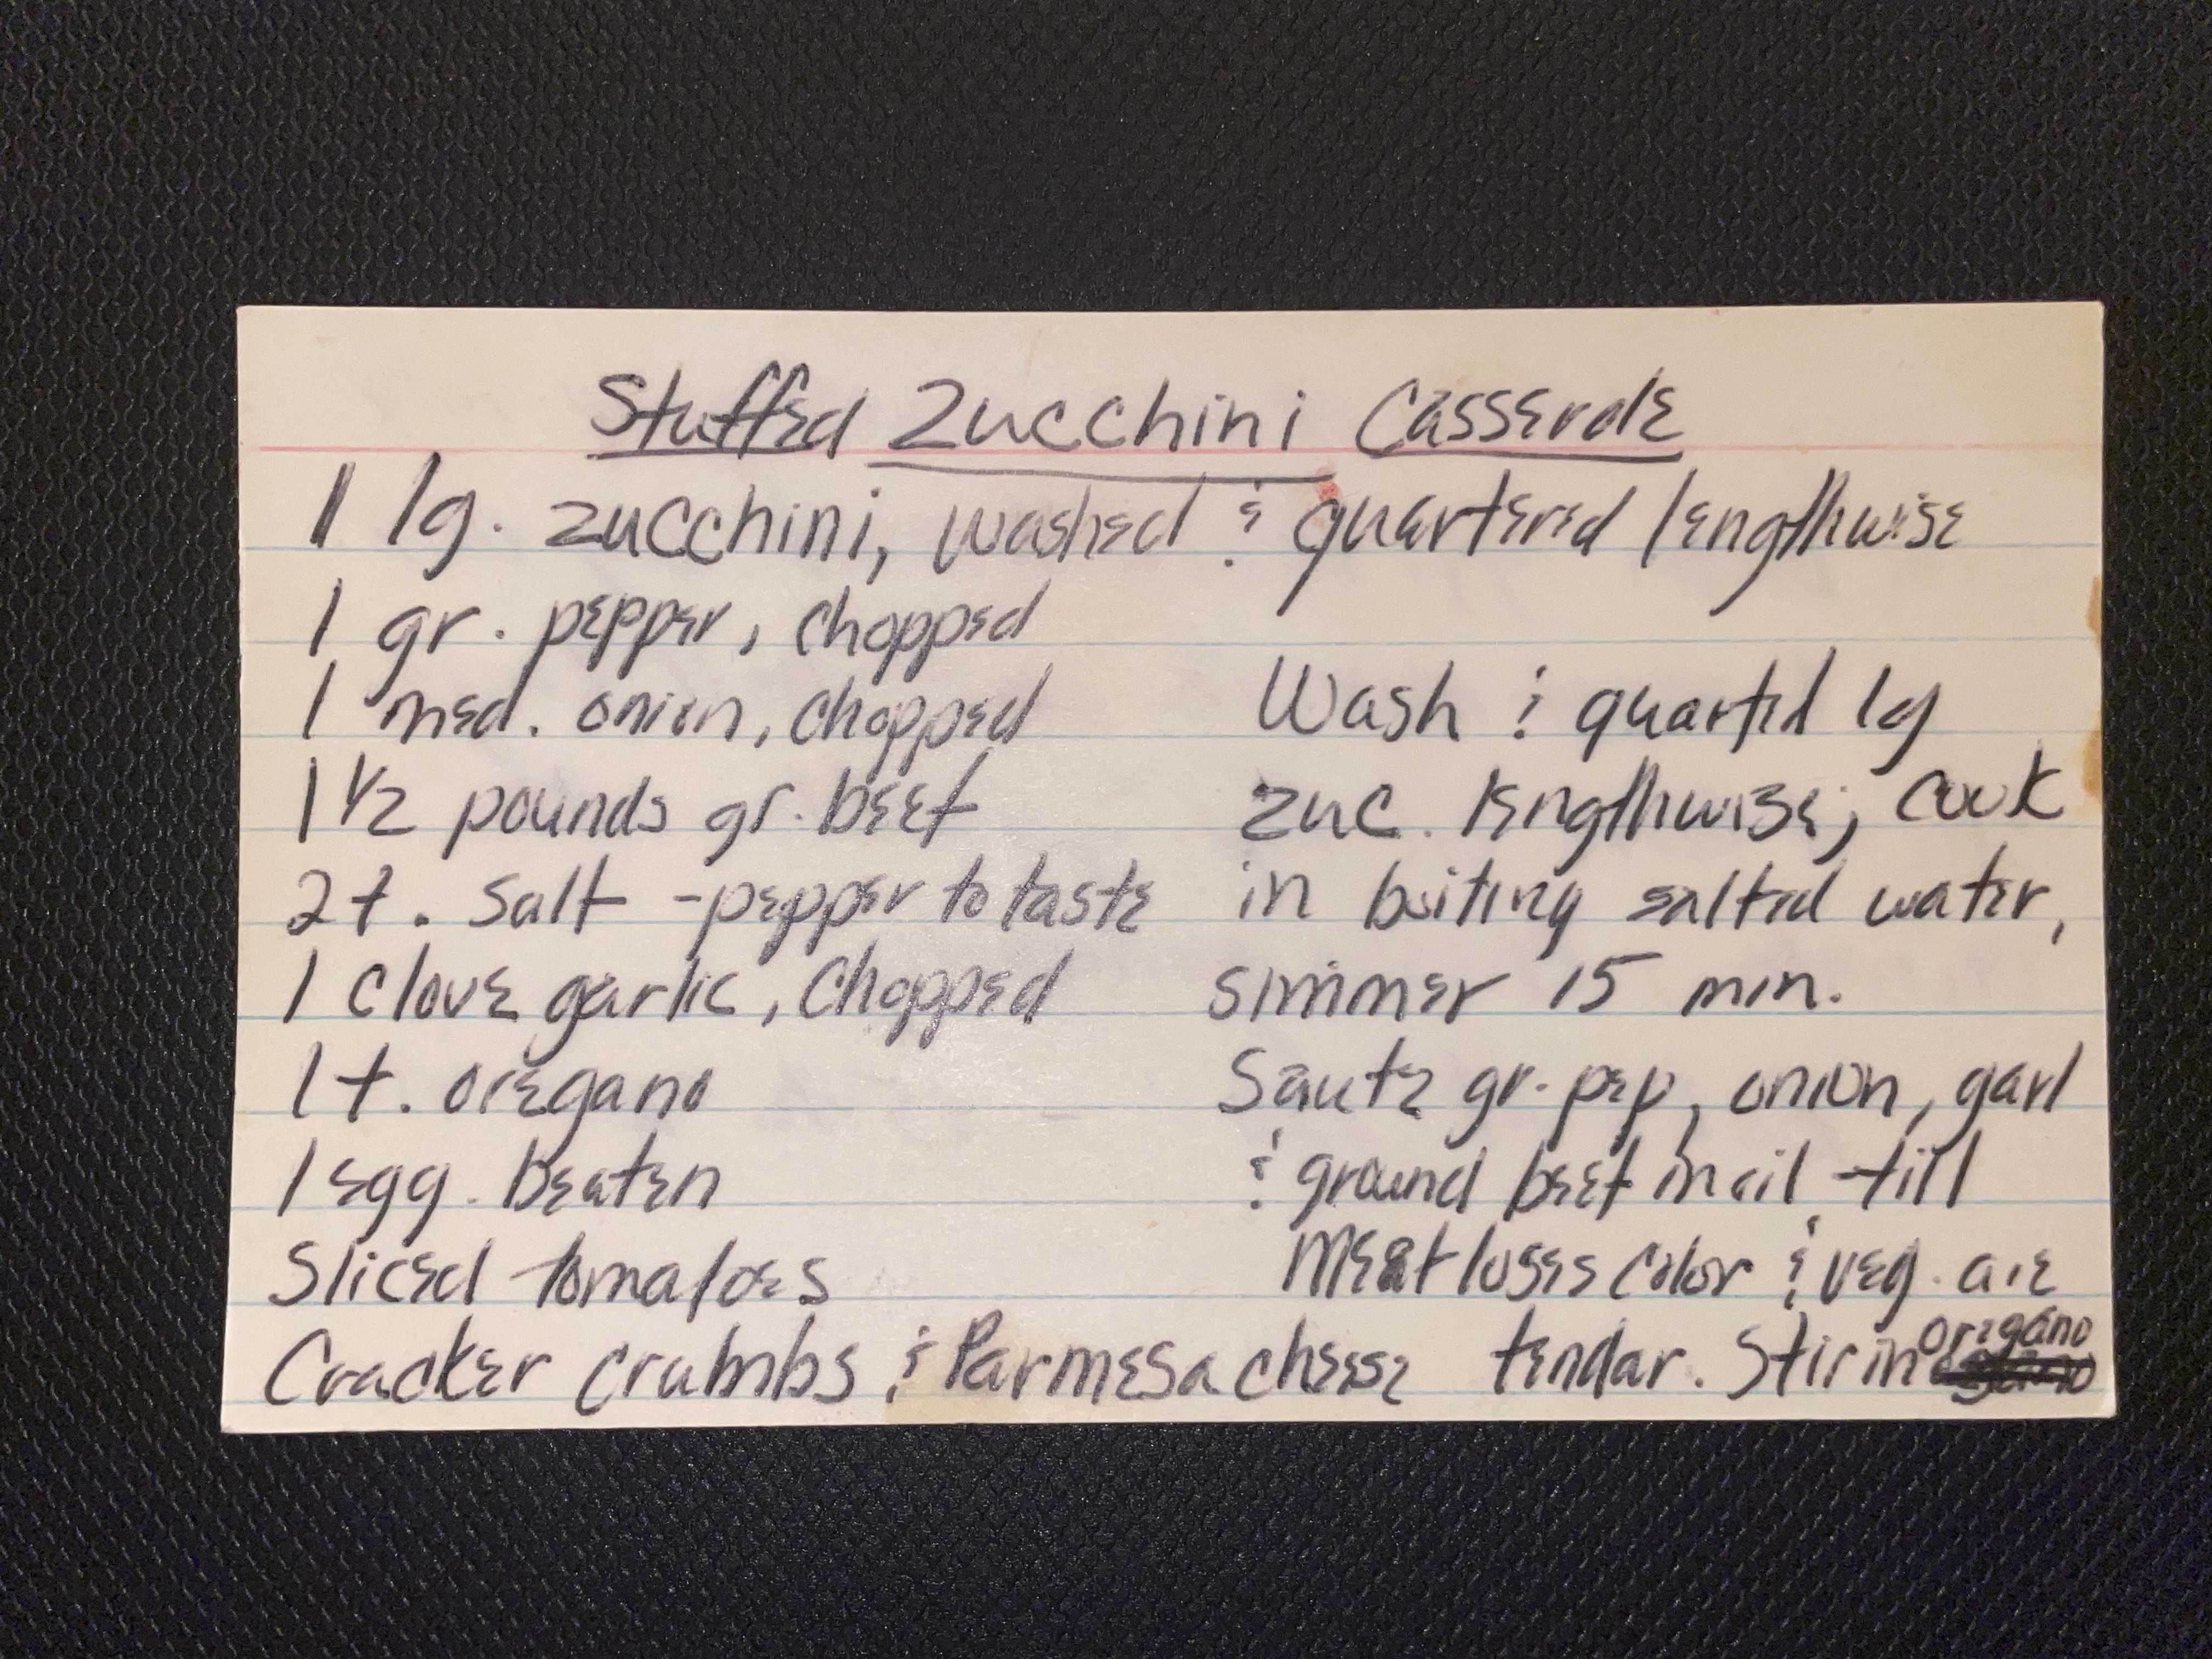 Stuffed Zucchini Casserole
1 lg. zucchini, washed & quartered lengthwise
1 gr. pepper, chopped
1 med. onion, chopped
1 1/2 pounds gr. beef
2 t. salt - pepper to taste
1 clove garlic, chopped
1 t. oregano
1 egg. beaten
Sliced tomatoes
Cracker crumbs & Parmesa cheese
Wash & quarted lg
zuc. lengthwise; cook
in boiling salted water,
simmer 15 min.
Saute gr. pep, onion, garl
& ground beef in oil till
meat loses color & veg. are
tendar. Stir in oregano